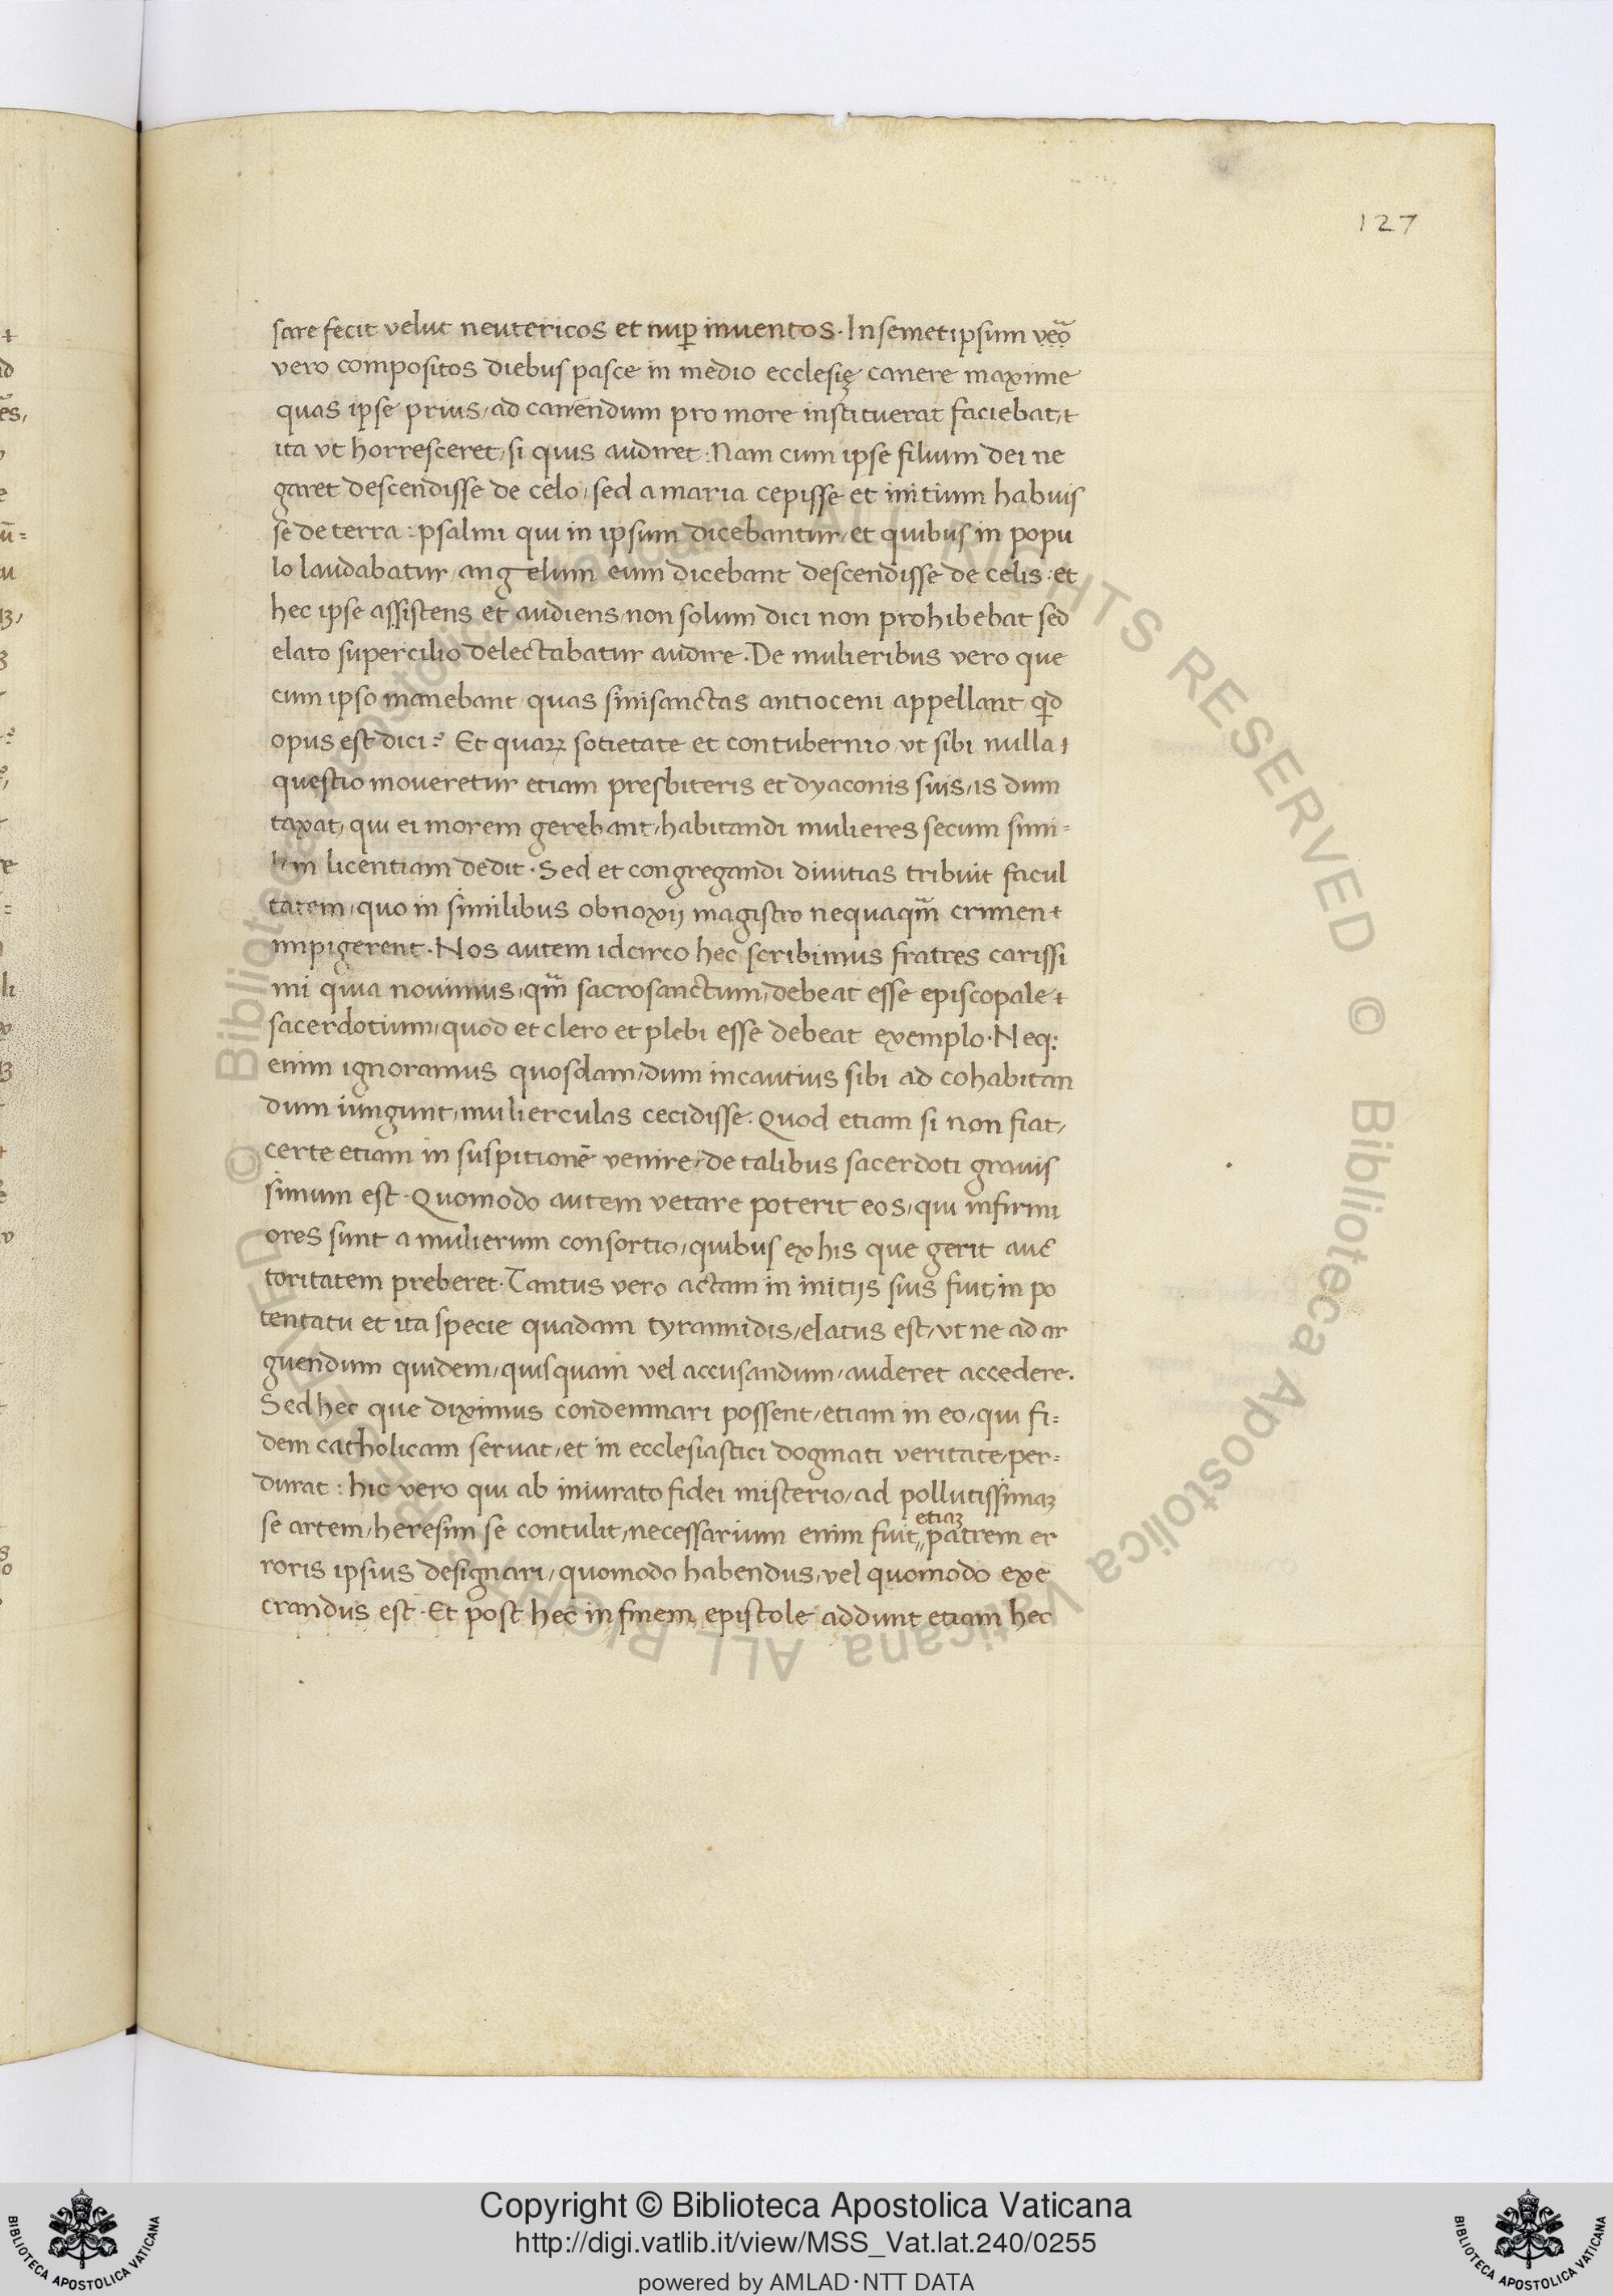 127
sare fecit velut neutericos et nuꝑ inuentos. In semetipsum vero
vero compositos diebus pasce in medio ecclesię canere maxime
quas ipse prius, ad canendum pro more instituerat faciebat,
ita vt horresceret, si quis audiret: Nam cum ipse filium dei ne
garet descendisse de celo, sed a maria cepisse et initium habuis
se de terra: psalmi qui in ipsum dicebantur, et quibus in popu
lo laudabatur, angelum eum dicebant descendisse de celis: et
hec ipse assistens et audiens, non solum dici non prohibebat sed
elato supercilio delectabatur audire. De mulieribus vero que
cum ipso manebant, quas sinisanctas antioceni appellant, qd
opus est dici? Et quaꝝ sotietate et contubernio, vt sibi nulla
questio moueretur etiam presbiteris et dyaconis suis, is dum
taxat, qui ei morem gerebant, habitandi mulieres secum simi-
lem licentiam dedit. Sed et congregandi diuitias tribuit facul
tatem, quo in similibus obnoxij magistro nequaqm̃ crimen
impigerent. Nos autem idcirco hec scribimus fratres carissi
mi quia nouimus, qm̃ sacrosanctum, debeat esse episcopale
sacerdotium, quod et clero et plebi esse debeat exemplo. Neq:
enim ignoramus quosdam, dum incautius sibi ad cohabitan
dum iungunt, mulierculas cecidisse. Quod etiam si non fiat,
certe etiam in suspitionē venire, de talibus sacerdoti grauis
simum est. Quomodo autem vetare poterit eos, qui infirmi
ores sunt a mulierum consortio, quibus ex his que gerit auc
toritatem preberet. Tantus vero actam in initijs suis fuit, in po
tentatu et ita specie quadam tyrannidis, elatus est, vt ne ad ar
guendum quidem, quisquam vel accusandum, auderet accedere.
Sed hec que diximus condemnari possent, etiam in eo, qui fi-
dem catholicam seruat, et in ecclesiastici dogmati veritate, per-
durat: hic vero qui ab iniurato fidei misterio, ad pollutissimaꝫ
etiaꝫ
se artem, heresim se contulit, necessarium enim fuit, patrem er
roris ipsius designari, quomodo habendus, vel quomodo exe
crandus est. Et post hec in finem, epistole addunt etiam hec
© Biblioteca Apostolica Vaticana ALL RIGHTS RESERVED © Biblioteca Apostolica Vaticana ALL RIGHTS RESERVED
Copyright © Biblioteca Apostolica Vaticana
http://digi.vatlib.it/view/MSS_Vat.lat.240/0255
powered by AMLAD·NTT DATA
BIBLIOTECA APOSTOLICA VATICANA
BIBLIOTECA APOSTOLICA VATICANA